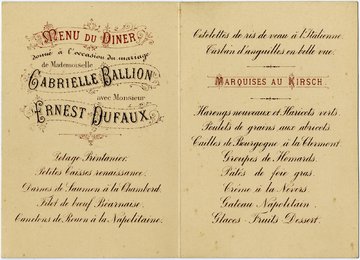 MENU DU DINER
donné à l'occasion du mariage
de Mademoiselle
GABRIELLE BALLION
avec Monsieur
ERNEST DUFAUX
Potage Printanier.
Petites Caisses renaissance.
Darnes de Saumon à la Chambord.
Filet de bœuf Béarnaise.
Canetons de Rouen à la Napolitaine.
Côtelettes de ris de veau à l'Italienne.
Turban d'anguilles en belle vue.
MARQUISES AU KIRSCH
Harengs nouveaux et Haricots verts.
Poulets de grains aux abricots.
Cailles de Bourgogne à la Clermont
Groupes de Homards.
Patés de foie gras.
Crème à la Nevers.
Gateau Napolitain.
Glaces Fruits Dessert.